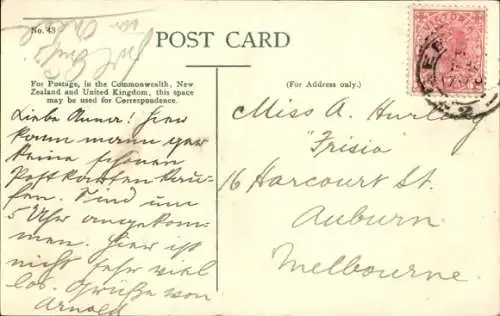 No. 43
POST CARD
For Postage, in the Commonwealth, New
Zealand and United Kingdom, this space
may be used for Correspondence.
(For Address only.)
VICTORIA
Liebe Anna! Hier
kann mann gar
keine schönen
Postkarten kau-
fen. Sind um
5 Uhr angekom-
men. Hier ist
nicht sehr viel
los. Grüße von
Arnold
Miss A. Hurling
"Frisia"
16 Harcourt St.
Auburn
Melbourne.